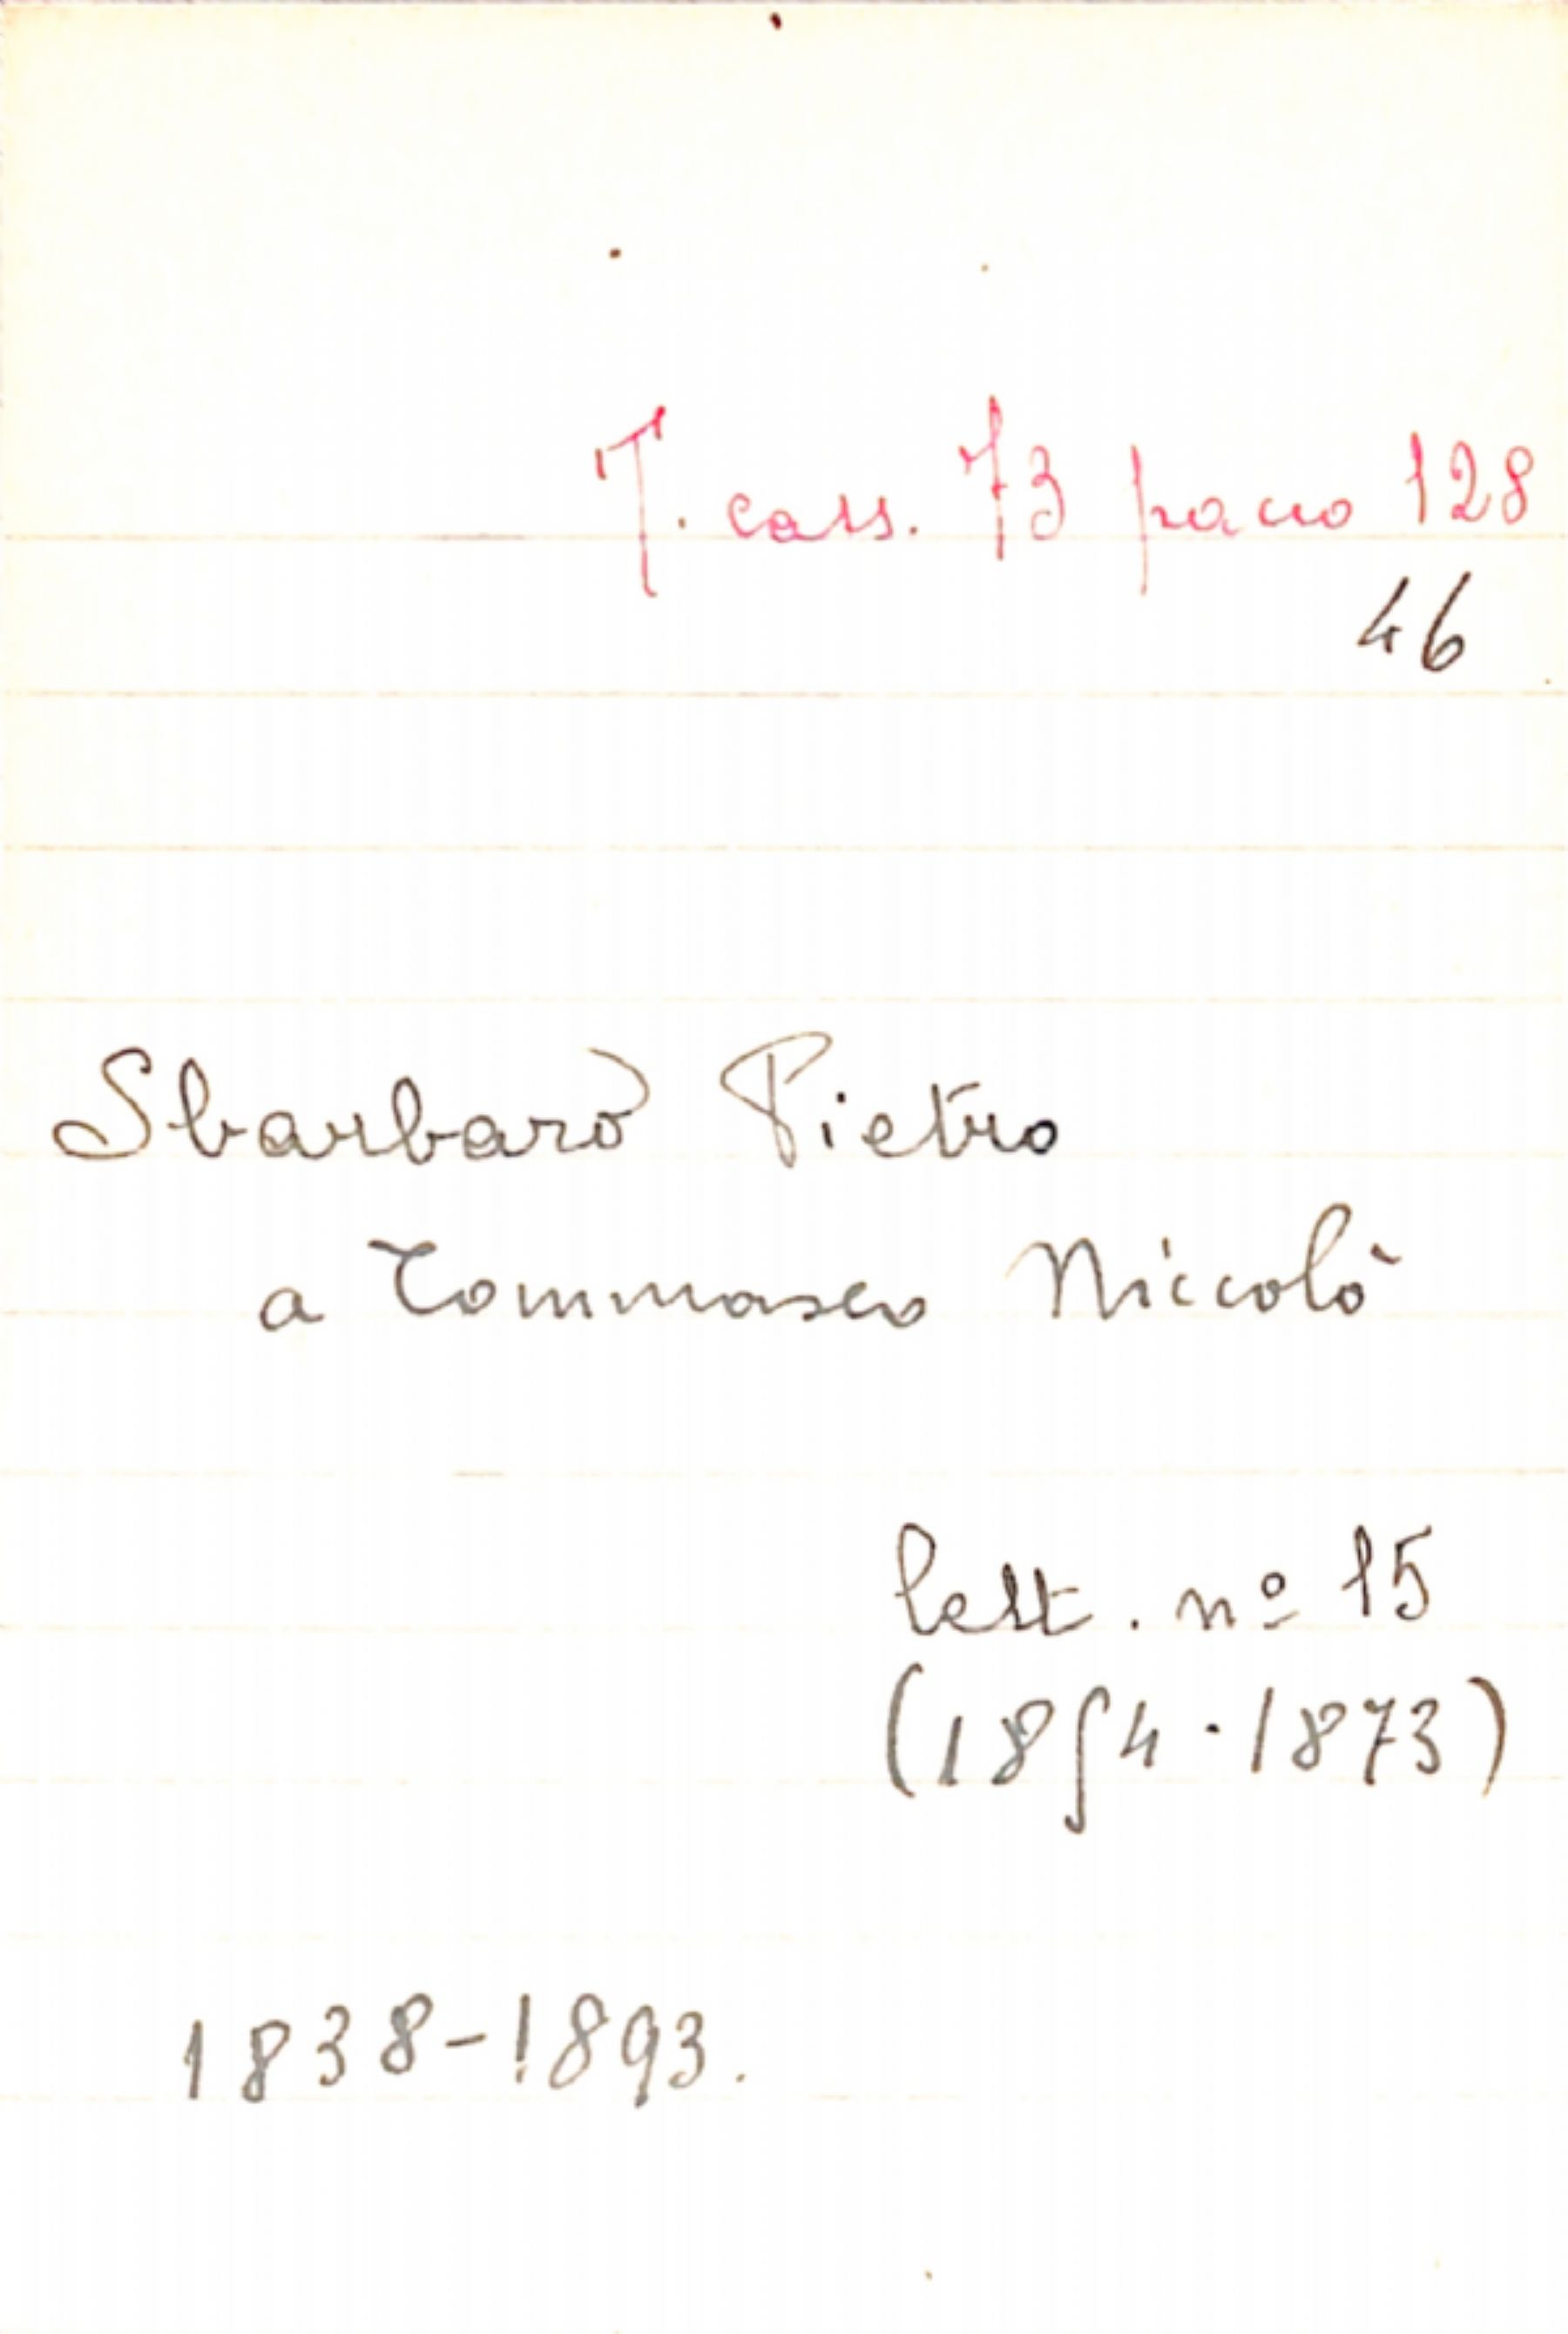 T. cass. 73 pacco 128
46
Sbarbaro Pietro
a Tommaseo Niccolò
lett. nº 15
(1854-1873)
1838-1893.